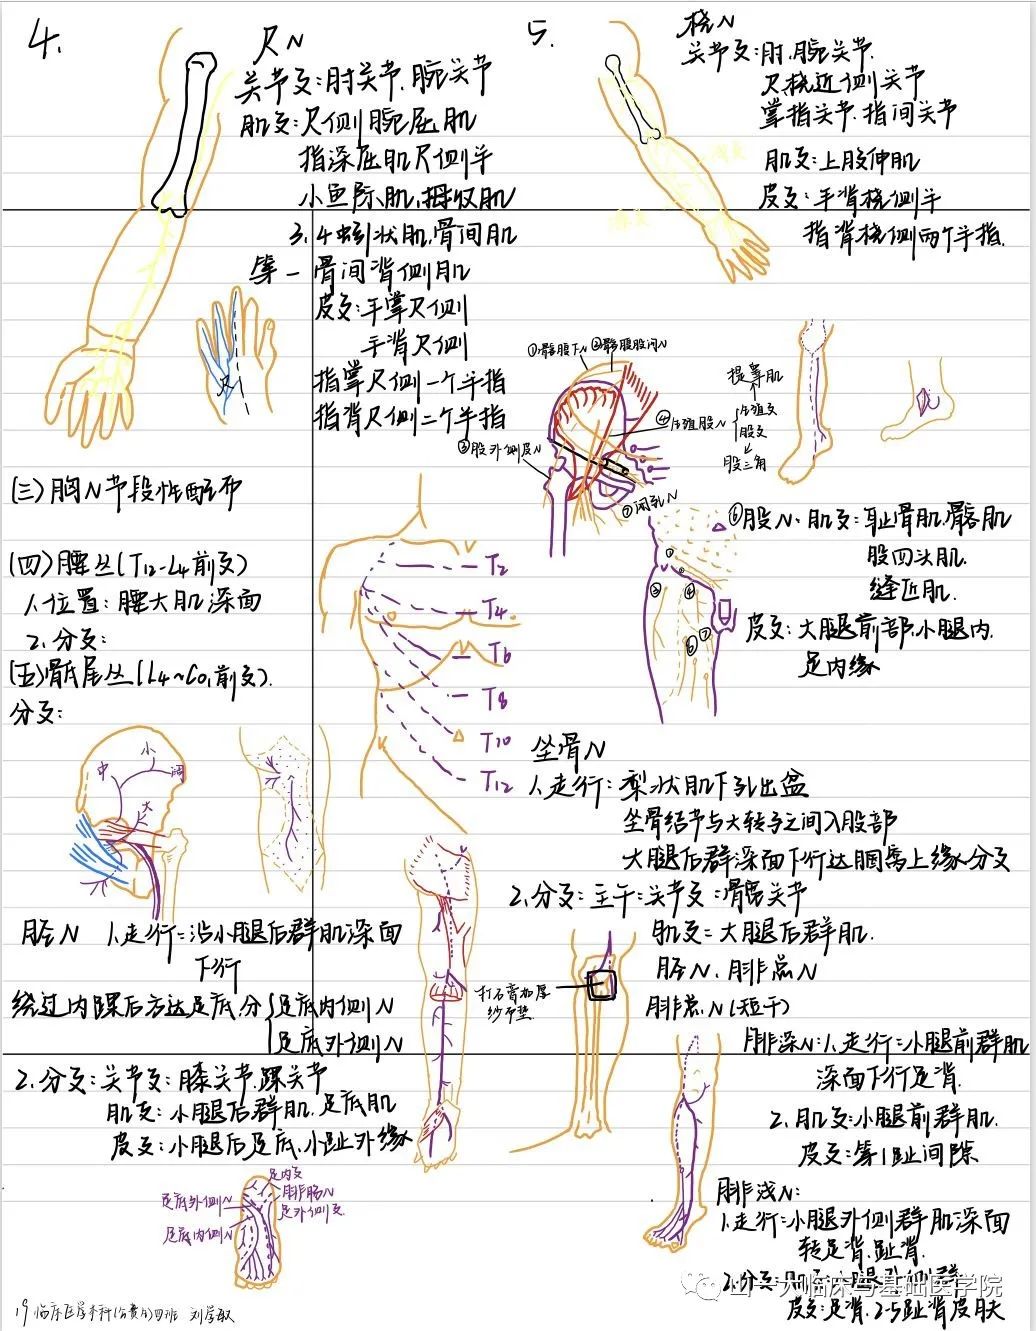 4.
尺N
关节支:肘关节.腕关节
肌支:尺侧腕屈肌
指深屈肌尺侧半
小鱼际肌,拇收肌
3.4蚓状肌,骨间肌
第一骨间背侧肌
皮支:手掌尺侧
手背尺侧
指掌尺侧一个半指
指背尺侧二个半指
尺
5.
桡N
关节支:肘.腕关节.
尺桡近侧关节
掌指关节.指间关节
肌支:上肢伸肌
皮支:手背桡侧半
指背桡侧两个半指.
浅支
深支
①髂腹下N
②髂腹股沟N
③股外侧皮N
④生殖股N
生殖支
股支
提睾肌
股三角
⑦闭孔N
⑥股N.肌支:耻骨肌.髂肌
股四头肌.
缝匠肌.
皮支:大腿前部.小腿内.
足内缘
(三)胸N节段性配布
(四)腰丛(T12-L4前支)
1.位置:腰大肌深面
2.分支:
(五)骶尾丛(L4~Co1前支).
分支:
T2
T4
T6
T8
T10
T12
小
中
闭
大
坐骨N
1.走行:梨状肌下孔出盆
坐骨结节与大转子之间入股部
大腿后群深面下行达腘窝上缘分支
2.分支:主干:关节支:髋关节
肌支:大腿后群肌.
胫N.腓总N
腓总N(短干)
腓深N:1.走行:小腿前群肌
深面下行足背.
2.肌支:小腿前群肌.
皮支:第1趾间隙
腓浅N:
1.走行:小腿外侧群肌深面
转足背.趾背.
2.分支:肌支:小腿外侧群
皮支:足背.2-5趾背皮肤
打石膏加厚
纱布垫.
胫N 1.走行:沿小腿后群肌深面
下行
绕过内踝后方达足底.分
足底内侧N
足底外侧N
2.分支:关节支:膝关节.踝关节
肌支:小腿后群肌.足底肌
皮支:小腿后足底.小趾外缘
足内支
腓肠N
足外侧支
足底外侧N
足底内侧N
山一大临床与基础医学院